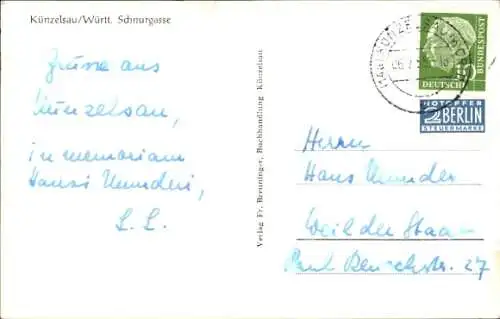 Künzelsau/Württ. Schnurgasse
Grüsse aus
Künzelsau,
in memoriam
Hansi
L. L.
Verlag Fr. Breuninger, Buchhandlung, Künzelsau
KÜNZELSAU
DEUTSCHE BUNDESPOST
NOTOPFER
2 BERLIN
STEUERMARKE
Herrn
Hans
Weil der
Paul 27